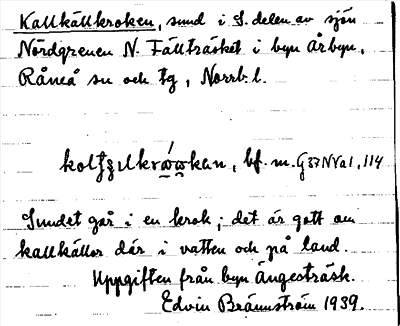 Kallkällkroken, sund i S. delen av sjön
Nördgrenen N. Fällträsket i byn Årbyn,
Råneå sn och tg, Norrb. l.
bf. m. G 37 N V a 1, 114
Sundet går i en krok; det är gott om
kallkällor där i vatten och på land.
Uppgiften från byn Ängesträsk.
Edvin Brännström 1939.